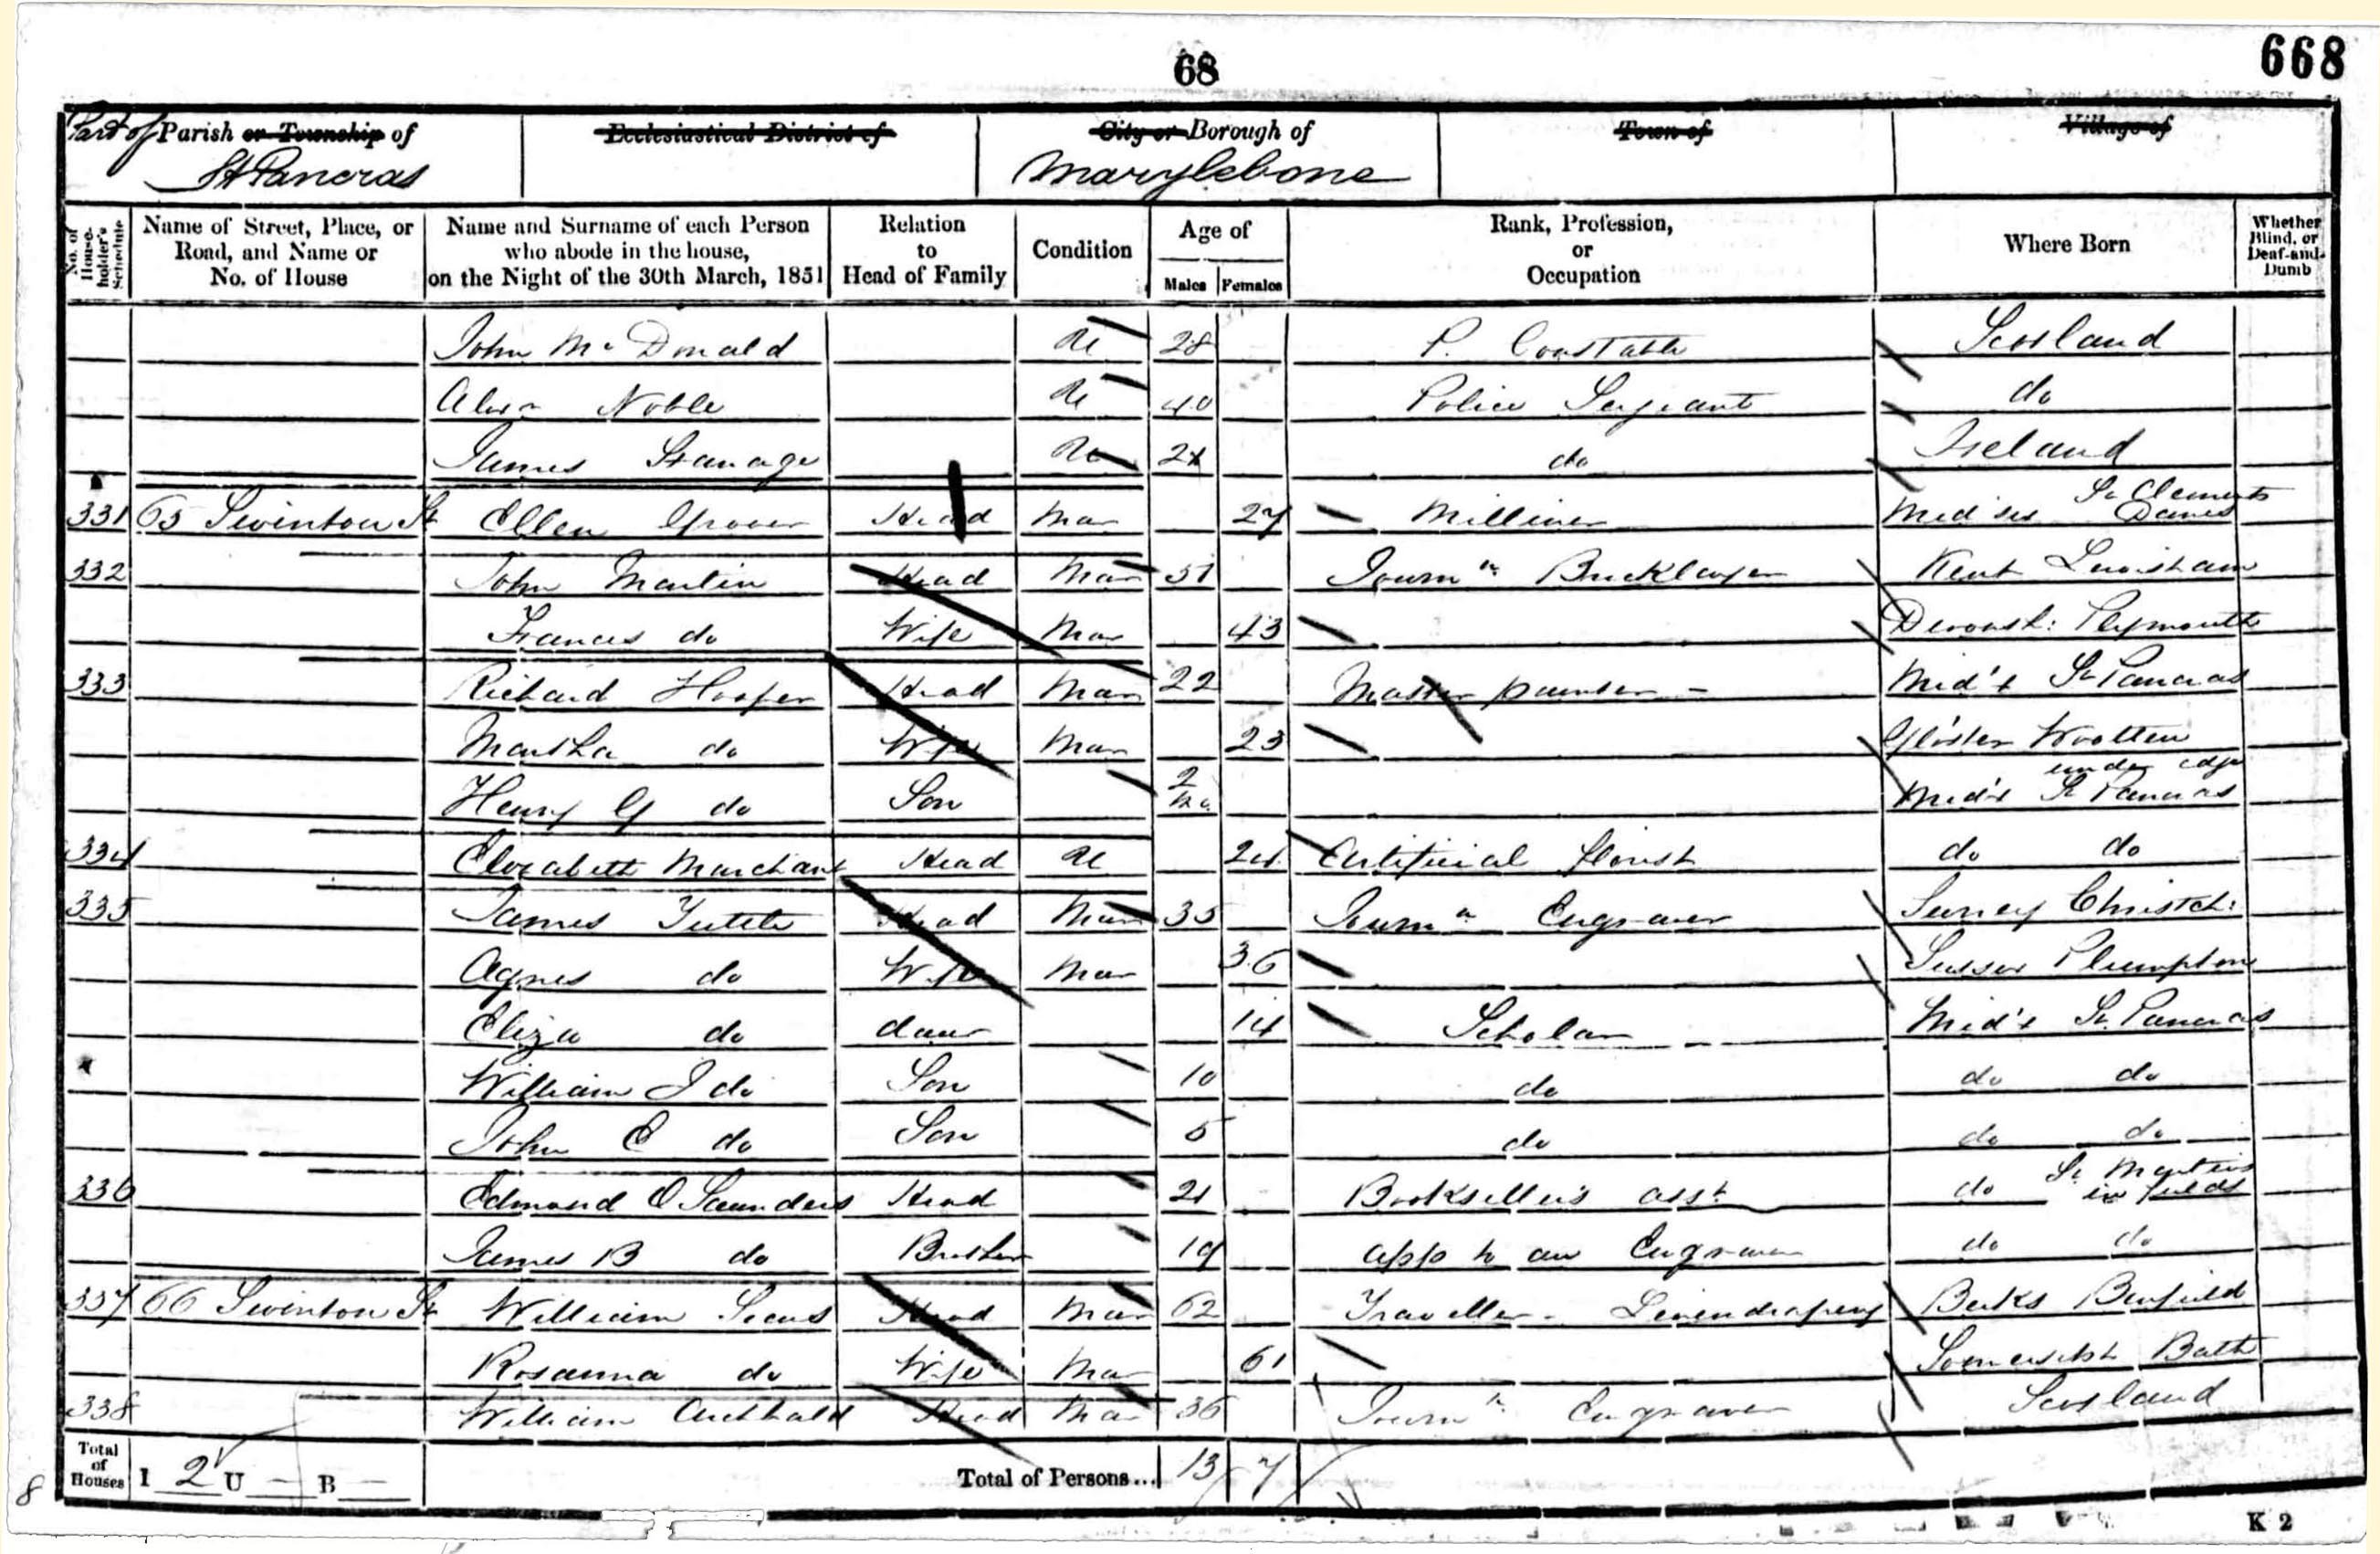 668
68
Part of Parish or Township of
St Pancras
Ecclesiastical District of
City or Borough of
Marylebone
Town of
Village of
No. of House-holder's Schedule
Name of Street, Place, or Road, and Name or No. of House
Name and Surname of each Person who abode in the house, on the Night of the 30th March, 1851
Relation to Head of Family
Condition
Age of
Males Females
Rank, Profession, or Occupation
Where Born
Whether Blind, or Deaf-and-Dumb
John McDonald U 28 P. Constable Scotland
Alexr Noble U 40 Police Sergeant do
James U do Ireland
331 65 Swinton St Ellen Grover Head Mar 27 Milliner Midsex St Clements Danes
332 John Martin Head Mar 51 Journn Bricklayer Kent Lewisham
Frances do Wife Mar 43 Devonsh: Plymouth
333 Richard Hooper Head Mar 22 Master painter Mid'x St Pancras
Martha do Wife Mar 23 Gloster Wootten under edge
Henry G do Son 2 mo Mid'x St Pancras
334 Elizabeth Marchant Head U 24 Artificial florist do do
335 James Tuttle Head Mar 35 Journn Engraver Surrey Christch:
Agnes do Wife Mar 36 Sussex Plumpton
Eliza do daur 14 Scholar Mid'x St. Pancras
William J do Son 10 do do do
John C do Son 5 do do do
336 Edmond O Saunders Head 21 Bookseller's asst do St Martins in fields
James B do Brother 19 app to an Engraver do do
337 66 Swinton St William Head Mar 62 Traveller - Linendrapery Berks Binfield
Rosanna do Wife Mar 61 Somersetsh Bath
338 William Archbald Head Mar 36 Journn Engraver Scotland
Total of Houses I 2 U — B —
Total of Persons... 13 7
8
K 2